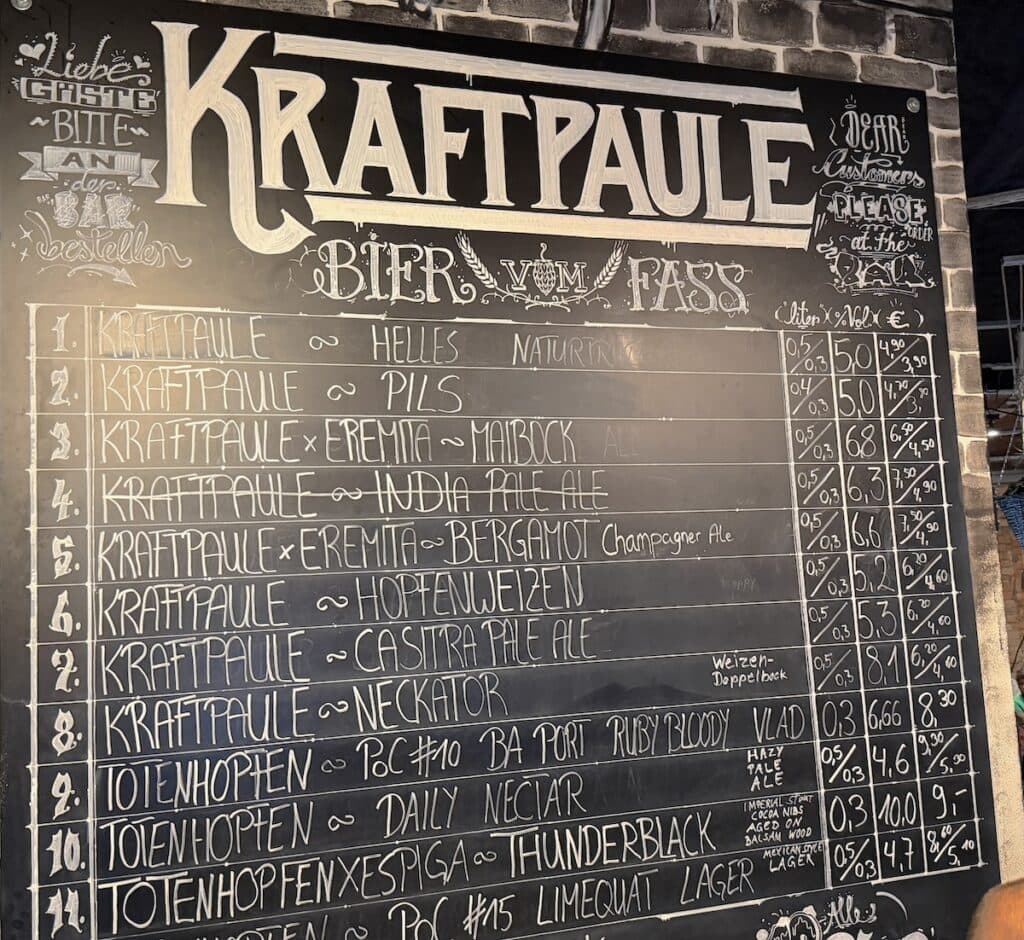 Liebe
GÄSTE
~BITTE~
AN
der
BAR
bestellen
KRAFTPAULE
DEAR
Customers
PLEASE
ORDER
at the
BAR
BIER VOM FASS
(liter × %Vol × €)
1. KRAFTPAULE ~ HELLES NATURTR 0,5/0,3 5,0 4,90/3,90
2. KRAFTPAULE ~ PILS 0,4/0,3 5,0 4,70/
3. KRAFTPAULE × EREMITA ~ MAIBOCK 0,5/0,3 6,8 6,50/4,50
4. KRAFTPAULE ~ INDIA PALE ALE 0,5/0,3 6,3 7,50/4,90
5. KRAFTPAULE × EREMITA ~ BERGAMOT Champagner Ale 0,5/0,3 6,6 7,50/4,90
6. KRAFTPAULE ~ HOPFENWEIZEN 0,5/0,3 5,2 6,20/4,60
7. KRAFTPAULE ~ CASITRA PALE ALE 0,5/0,3 5,3 6,20/4,60
8. KRAFTPAULE ~ NECKATOR Weizen-Doppelbock 0,5/0,3 8,1 6,20/4,60
9. TOTENHOPFEN ~ PoC #10 BA PORT RUBY BLOODY VLAD 0,3 6,66 8,30
10. TOTENHOPFEN ~ DAILY NECTAR HAZY PALE ALE 0,5/0,3 4,6 9,30/5,90
11. TOTENHOPFENXESPIGA ~ THUNDERBLACK IMPERIAL STOUT COCOA NIBS AGED ON BALSAM WOOD 0,3 10,0 9,-
TOTENHOPFEN ~ PoC #15 LIMEQUAT LAGER MEXICAN STYLE LAGER 0,5/0,3 4,7 8,60/5,10
Alle